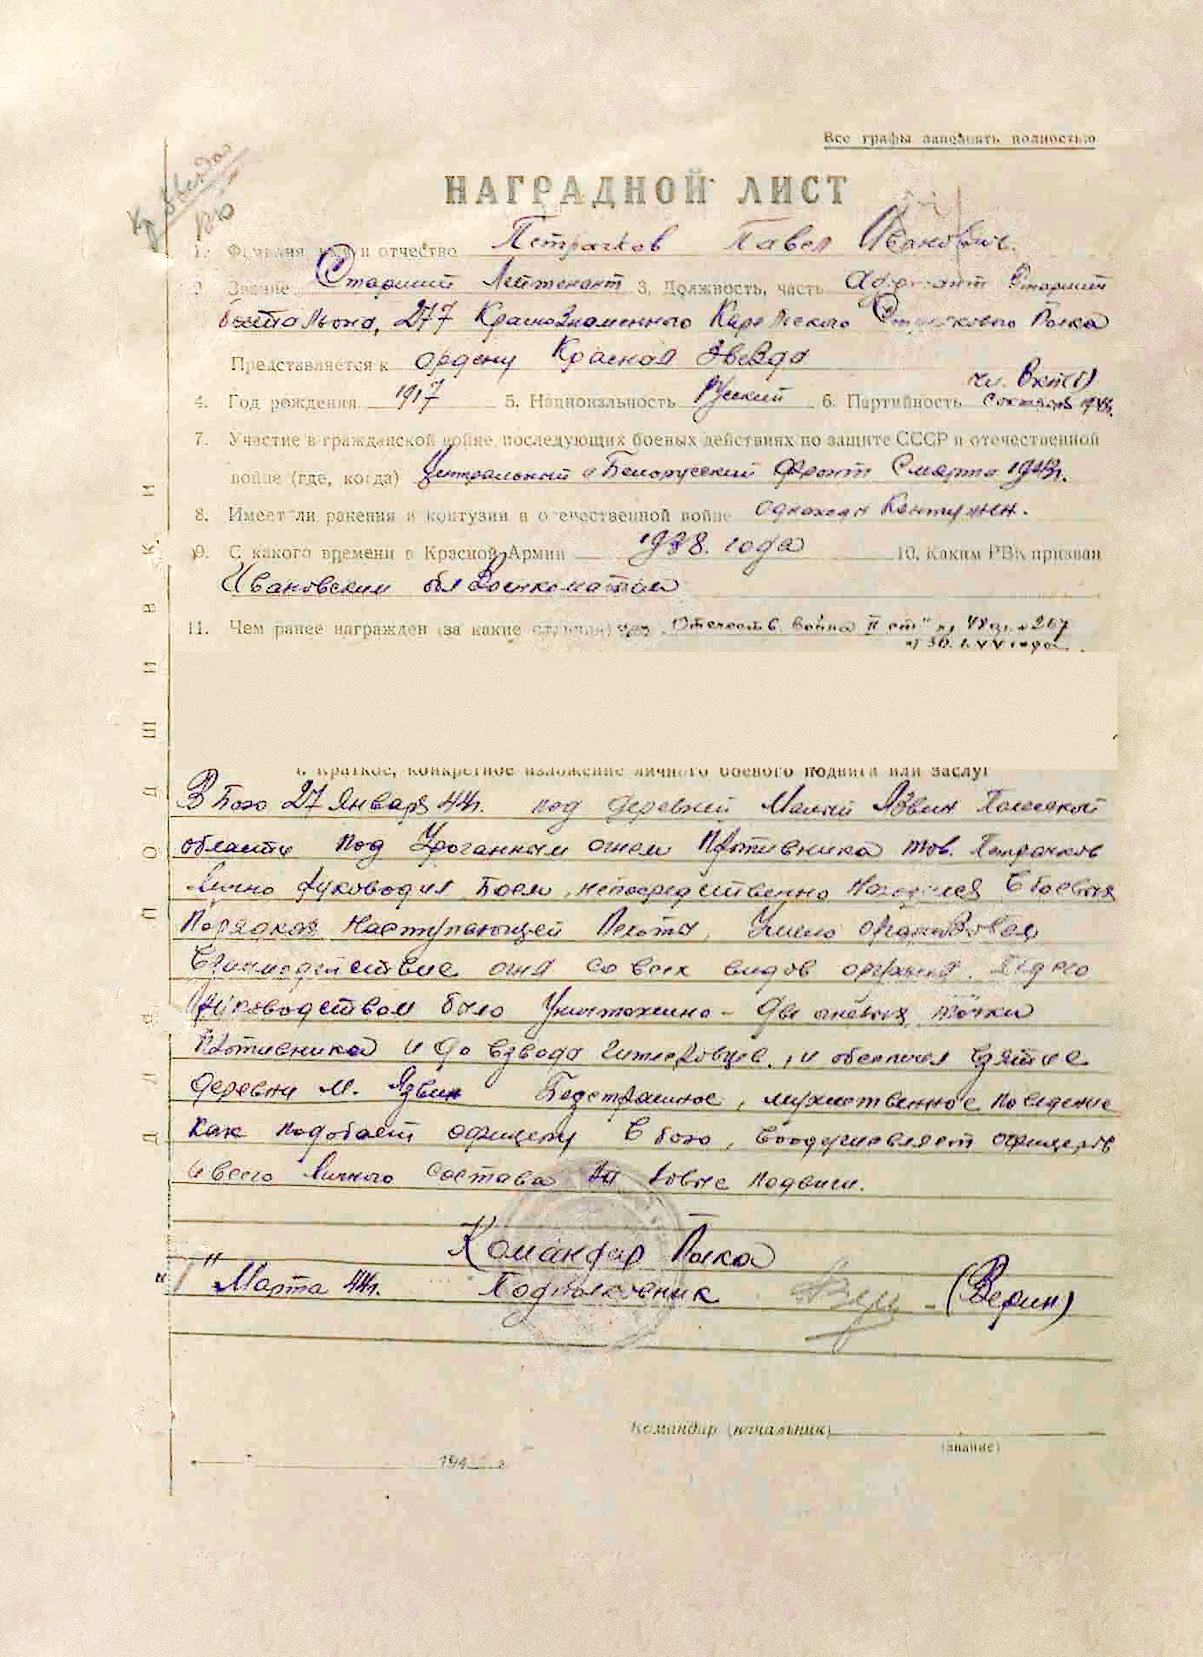 Все графы заполнять полностью
Кр Звезда
НАГРАДНОЙ ЛИСТ
1. Фамилия имя и отчество Петрачков Павел Иванович
2. Звание Старший Лейтенант 3. Должность, часть Адъютант Старший
батальона, 277 Краснознаменного Карельского Стрелкового Полка
Представляется к ордену Красная Звезда
чл. ВКП(б)
4. Год рождения 1917 5. Национальность Русский 6. Партийность с 1943г.
7. Участие в гражданской войне, последующих боевых действиях по защите СССР и отечественной
войне (где, когда) Центральный и Белорусский Фронт с марта 1943г.
8. Имеет ли ранения и контузии в отечественной войне однажды Контужен.
9. С какого времени в Красной Армии 1938. года 10. Каким РВК призван
Ивановским обл Военкоматом
11. Чем ранее награжден (за какие отличия) "Отечеств. война II ст"
Д Л Я П О Д Ш И В К И
1. Краткое, конкретное изложение личного боевого подвига или заслуг
В бою 27 Января 44г. под деревней Малый Язвин Полесской
области под Ураганным огнем Противника тов. Петрачков
лично руководил боем, непосредственно находился в боевых
Порядках Наступающей Пехоты, Умело организовал
Взаимодействие огня со всех видов оружия. Под его
Руководством было Уничтожено - две огневых точки
Противника и до взвода гитлеровцев, и обеспечил взятие
деревни М. Язвин Бесстрашное, мужественное поведение
как подобает офицеру в бою, воодушевляет офицеров
и всего личного состава на новые подвиги.
Командир Полка
" 1 " Марта 44г. Подполковник (Верин)
Командир (начальник)
(звание)
194 г.